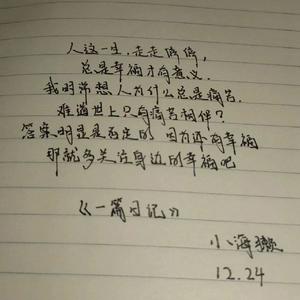 人这一生,走走停停,
总是幸福才有意义.
我时常想人为什么总是痛苦.
难道世上只有痛苦相伴?
答案明显是否定的 因为还有幸福
那就多关注身边的幸福吧
《一篇日记》
小海獭
12.24